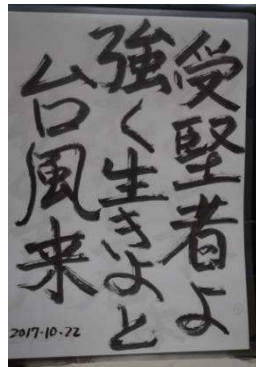 受堅者よ
強く生きよと
台風来
2017.10.22